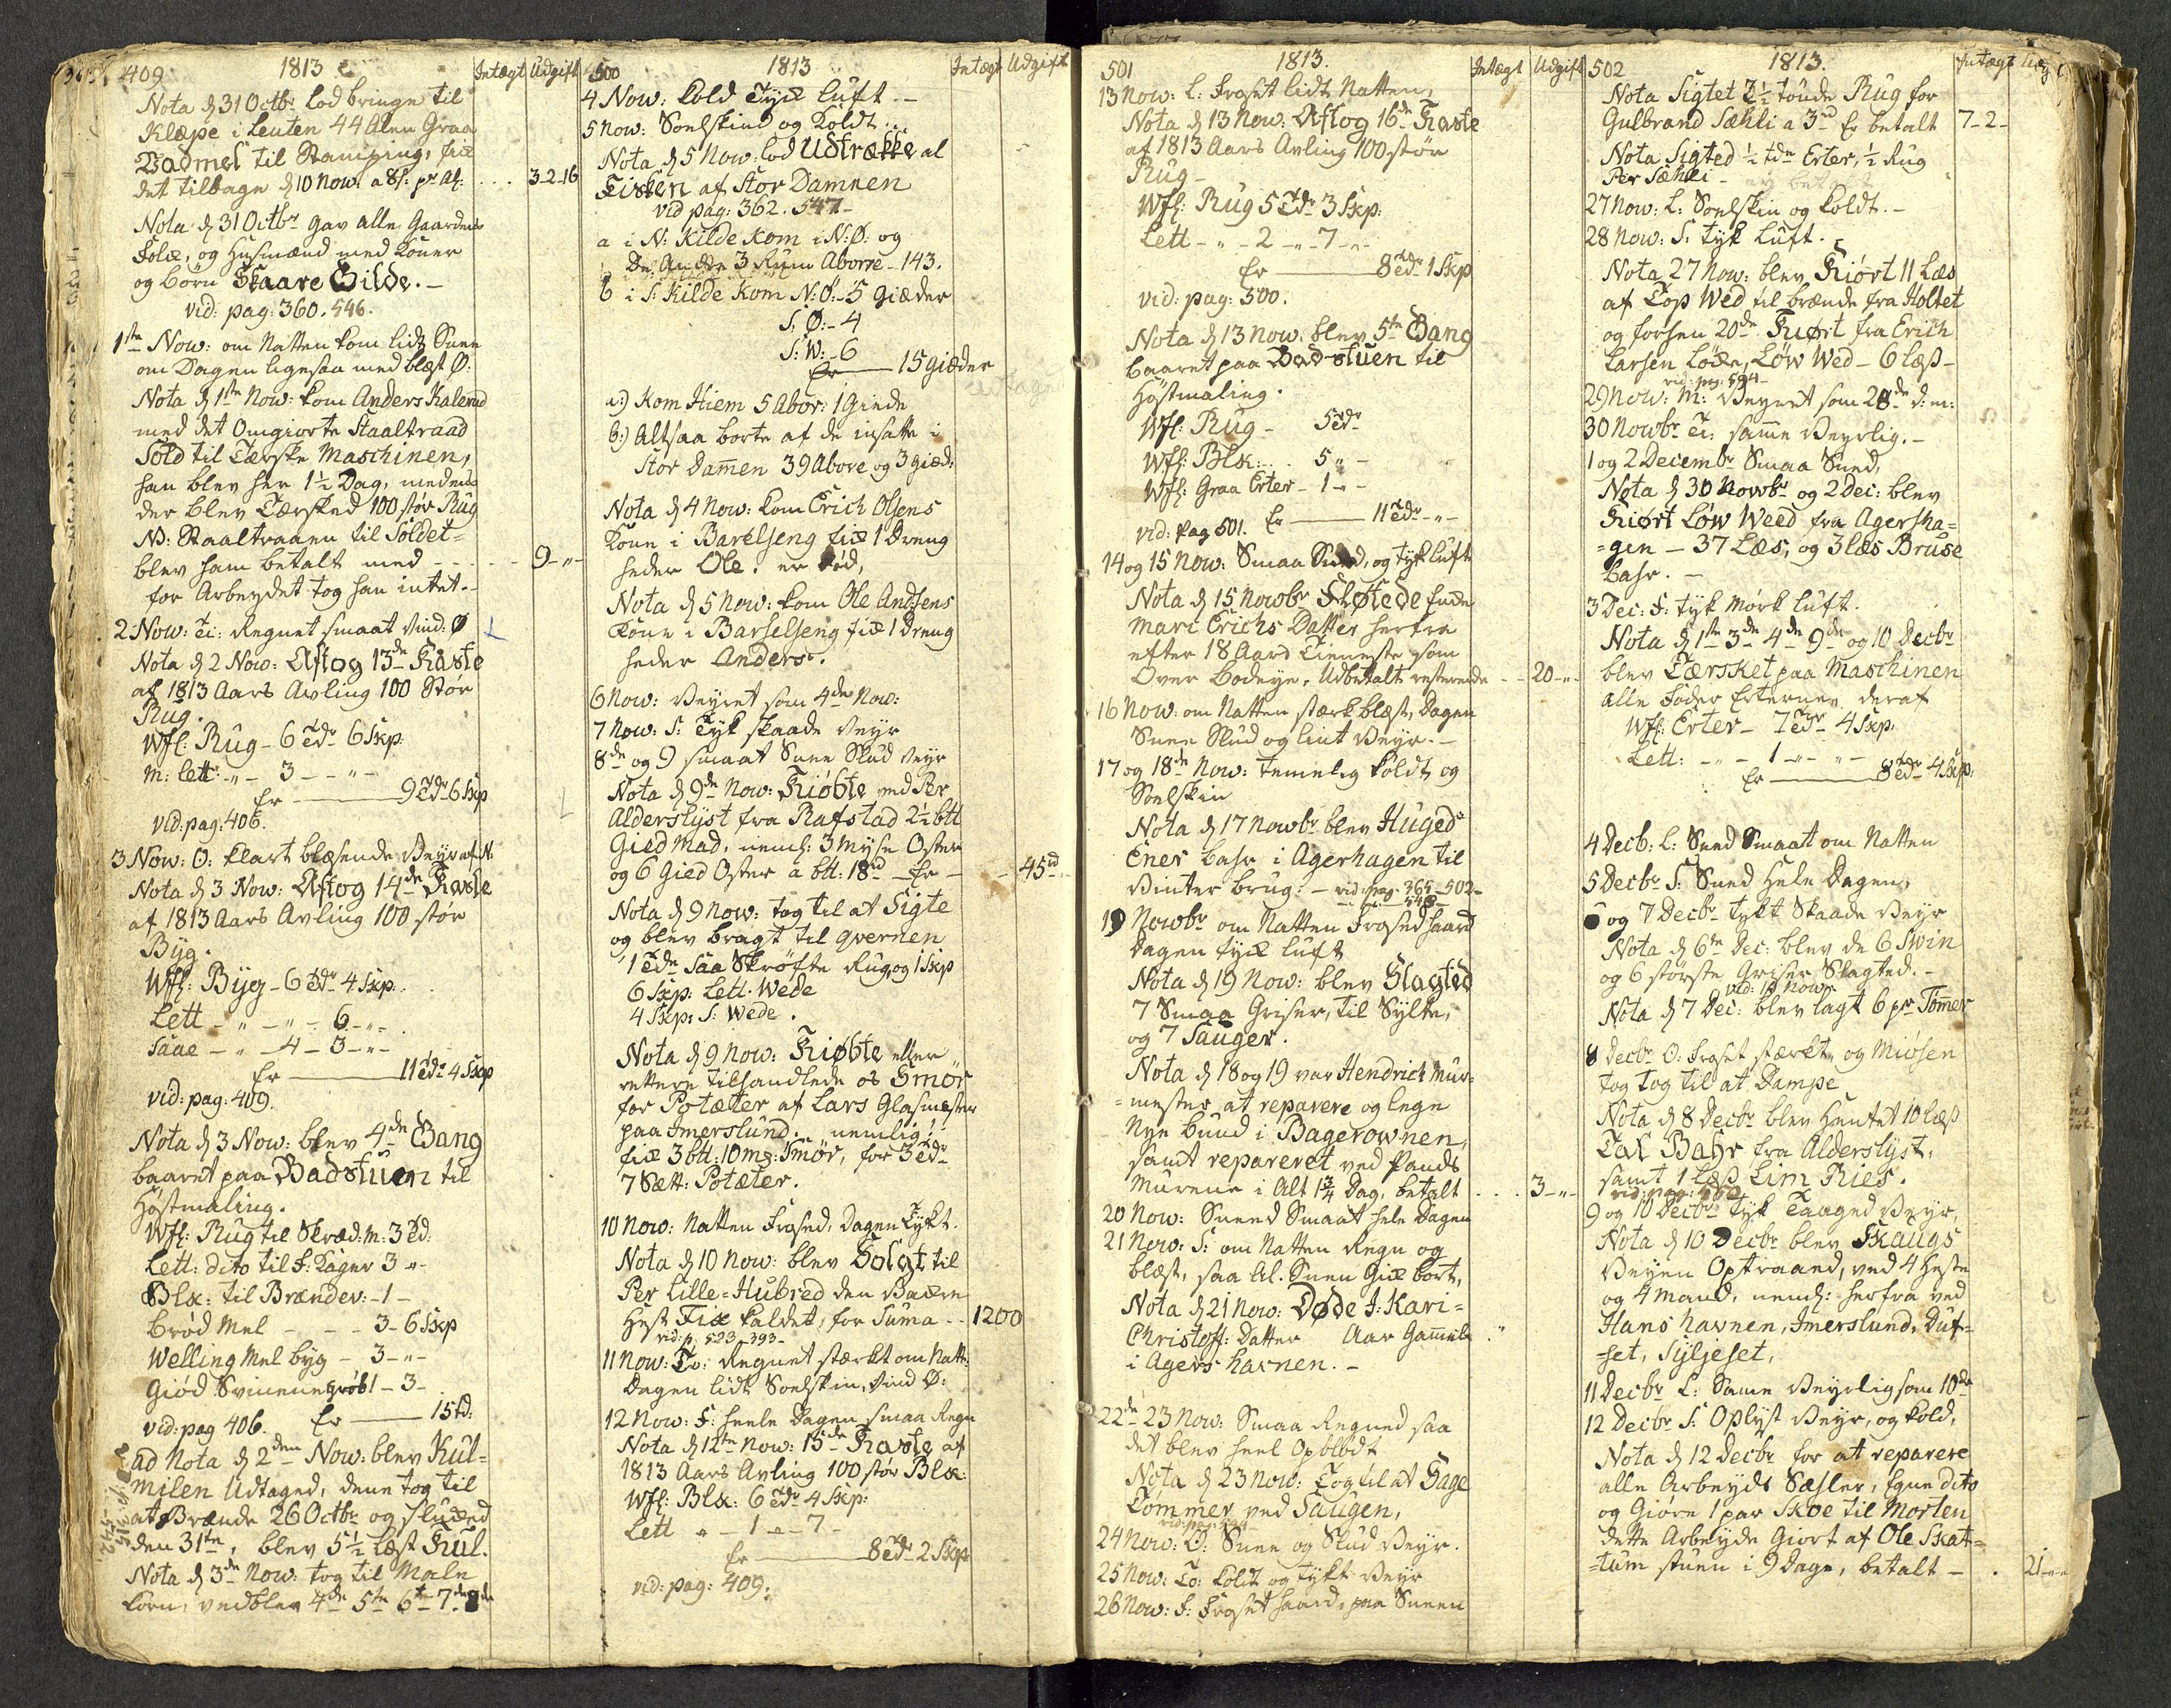 409
1813
Intægt Udgift
Nota d 31 Octbr lod bringe til
Klæpe i Leuten 44 Alen Graa
Vadmel til Stamping, fik
det tilbage d 10 Now: a 8 s: pr Al: . . . 3-2-16
Nota d 31 Octbr gav alle Gaardens
Folk, og Husmænd med Koner
og börn Skaare Gilde. -
vid: pag: 360. 546.
1ste Now: om Natten kom lidt Snee
om Dagen ligesaa med blæst Ø:
Nota d 1ste Now: kom Anders Kalerud
med det Omgiorte Staaltraad
Sold til Tærske Maschinen,
han blev her 1½ Dag, medens
der blev Tærsked 100 stör Rug
NB: Staaltraaen til Soldet=
blev ham betalt med - - - - 9-"-
for Arbeydet tog han intet. -
2 Now: Ti: Regnet smaat Vind: Ø
Nota d 2 Now: Aftog 13de Kaste
af 1813 Aars Avling 100 Stör
Rug.
Wfl: Rug - 6 Tdr 6 Skp:
M: Lett: - " - 3 - - " -
Er ——— 9 Tdr 6 Skp
vid: pag: 406.
3 Now: O: klart blæsende Veyr af N:
Nota d 3 Now: Aftog 14de Kaste
af 1813 Aars Avling 100 stör
Byg.
Wfl: Byg - 6 Tdr 4 Skp:
Lett - " - " - 6 - " -
Saae - " - 4 - 3 - " -
Er ——— 11 Tdr 4 Skp
vid: pag: 409.
Nota d 3 Now: blev 4de Gang
baaret paa Badstuen til
Höstmaling.
Wfl: Rug til Skræd: m: 3 Td:
Lett: dito til F: Kager 3 " -
Blk: til Brændev: - 1 -
bröd Mel - - - 3 - 6 Skp
Welling Mel byg - 3 - " -
Giöd Svinene Gröb 1 - 3 -
vid: pag 406. Er —— 15 td:
ad Nota d 2den Now: blev Kul=
milen Udtaged, dene tog til
at Brænde 26 Octbr og sluked
den 31te, blev 5½ Læst Kul.
Nota d 3de Now: tog til Male
korn, vedblev 4de 5te 6te 7de 8de
500
1813
Intægt Udgift
4 Now: kold Tyk luft. -
5 Now: Soelskind og Koldt. .
Nota d 5 Now: lod Udtrække al
Fisken af Stor Damnen
vid pag: 362. 547 -
a i N: Kilde kom i N: Ø: og
De Andre 3 Rum Aborre - 143.
b i S: Kilde kom N: Ø: - 5 Giæder
S: Ø: - 4
S: W: - 6
Er —— 15 Giæder
a:) Kom Hiem 5 Abor: 1 Giede
b:) Altsaa borte af de insatte i
Stor Damen 39 Abore og 3 Giæd:
Nota d 4 Now: kom Erich Olsens
Kone i Barselseng fik 1 Dreng
heder Ole. er död,
Nota d 5 Now: kom Ole Andsens
Kone i Barselseng fik 1 Dreng
heder Anders.
6 Now: Veyret som 4de Now:
7 Now: S: Tyk skaade Veyr
8de og 9 smaat Snee Slud Veyr
Nota d 9de Now: Kiöbte ved Per
Alderslyst fra Rafstad 2½ btt
Gied Mad, neml: 3 Myse Oster
og 6 Gied Oster a btt: 18rd - Er - - 45rd
Nota d 9 Now: tog til at Sigte
og blev bragt til Qvernen
1 Tdr Saa Skröfte Rug og 1 Skp
6 Skp: Lett. Wede
4 Skp: S: Wede.
Nota d 9 Now: Kiöbte eller
rettere tilhandlede os Smör
for Potæter af Lars Glasmester
paa Imerslund. nemlig:
fik 3 btt: 10 mk: Smör, for 3 Tdr
7 Sætt: Potæter.
10 Now: Natten frosed, Dagen Tykt.
Nota d 10 Now: blev Solgt til
Per Lille=Hubred den Vakre
Hest Fix kaldet, for Suma - - 1200
vid: p. 523. 393 -
11 Now: To: Regnet stærkt om Natt:
Dagen lidt Soelskin, Vind Ø:
12 Now: F: heele Dagen smaa Regn
Nota d 12te Now: 15de Kaste af
1813 Aars Avling 100 stör Blk:
Wfl: Blk: 6 Tdr 4 Skp:
Lett " - 1 - " - 7 -
Er ——— 8 Tdr 2 Skp
vid: pag: 409.
501
1813.
Intægt Udgift
13 Now: L: Froset lidt Natten,
Nota d 13 Now: Aftog 16de Kaste
af 1813 Aars Avling 100 stör
Rug -
Wfl: Rug 5 Tdr 3 Skp:
Lett - " - 2 - " - 7 - " -
Er ——— 8 Tdr 1 Skp
vid: pag: 500.
Nota d 13 Now: blev 5te Gang
baaret paa Badstuen til
Höstmaling.
Wfl: Rug - 5 Tdr
Wfl: Blk: . . 5 " -
Wfl: Graa Erter - 1 - " -
vid: Pag 501. Er —— 11 Tdr - " -
14 og 15 Now: Smaa Sneed, og Tyk luft
Nota d 15 Nowbr Fløttede Enke
Mari Erichs Datter herfra
efter 18 Aars Tieneste som
Over Bodeye. Udbetalt resterende - - 20 - " -
16 Now: om Natten stærk blæst, Dagen
Snee Slud og lint Veyr. -
17 og 18de Now: temelig koldt og
Soelskin
Nota d 17 Nowbr blev Huged
Ener Bahr i Agerhagen til
Vinter brug: - vid: pag. 365 - 502 -
548 -
19 Nowbr om Natten Frosed haard
Dagen tyk luft
Nota d 19 Now: blev Slagted
7 Smaa Griser, til Sylte,
og 7 Sauger.
Nota d 18 og 19 var Hendrich Mur=
=mester at reparere og lege
Nye bund i Bagerownen,
samt repareret ved Pands
Murene i Alt 1¾ Dag, betalt . . . 3 - " -
20 Now: Sneed Smaat hele Dagen
21 Now: S: om Natten Regn og
blæst, saa Al. Sneen Gik bort,
Nota d 21 Now: Døde J: Kari=
Christoff: Datter Aar Gamel
i Agers havnen. -
22de 23 Now: Smaa Regned saa
det blev heel Opblödt
Nota d 23 Now: Tog til at Sage
Tömmer ved Saugen,
24 Now: O: Snee og Slud Veyr.
25 Now: To: koldt og tykt Veyr
26 Now: F: Froset haard, paa Sneen
502
1813.
Intægt
Nota Sigtet 3½ tönde Rug for
Gulbrand Sæhli a 3rd Er betalt 7-2-
Nota Sigted ½ tdr Erter, ½ Rug
Per Sæhli -
27 Now: L: Soelskin og koldt. -
28 Now: S: tyk luft.
Nota 27 Now: blev Kiørt 11 Læs
af Top Wed til brænde fra Holtet
og forhen 20de Kiørt fra Erich
Larsen Löken, Löw Wed - 6 læs -
vid: pag: 594 -
29 Now: M: Veyret som 28de d: m:
30 Nowbr Ti: samme Veyrlig. -
1 og 2 Decembr Smaa Sneed,
Nota d 30 Nowbr og 2 Dec: blev
Kiørt Löw Weed fra Agersha=
=gen - 37 Læs, og 3 læs Bruse
bahr. -
3 Dec: F: tyk Mörk luft.
Nota d 1ste 3de 4de 9de og 10 Decbr
blev Tærsket paa Maschinen
alle Foder Erterne, deraf
Wfl: Erter - 7 Tdr 4 Skp,
Lett: - " - 1 - " - " -
Er ——— 8 Tdr 4 Skp:
4 Decb: L: Sneed Smaat om Natten
5 Decbr S: Sneed Hele Dagen,
6 og 7 Decbr tykt Skaade Veyr
Nota d 6te Dec: blev de 6 Swin
og 6 største Griser Slagted. -
vid: 19 Nowr
Nota d 7 Dec: blev lagt 6 pr Tömer
8 Decbr O: Froset stærkt, og Miösen
tog tog til at Dampe
Nota d 8 Decbr blev Hentet 10 læs
Tal Bahr fra Alderslyst,
samt 1 Læs Lim Ries.
9 og 10 Decbr Tyk Taaged Veyr,
Nota d 10 Decbr blev Skaugs
Veyen Optraaed, ved 4 Heste
og 4 Mand, neml: herfra ved
Hans havnen, Imerslund, Duf=
=set, Sylseset,
11 Decbr L: Same Veyrlig som 10de
12 Decbr S: Oplyst Veyr, og kold,
Nota d 12 Decbr for at reparere
alle Arbeyds Sæhler, Egne dito
og Giöre 1 par Skoe til Morten
dette Arbeyde Giort af Ole Skat=
=tum stuen i 9 Dage, betalt - . 21 - " -